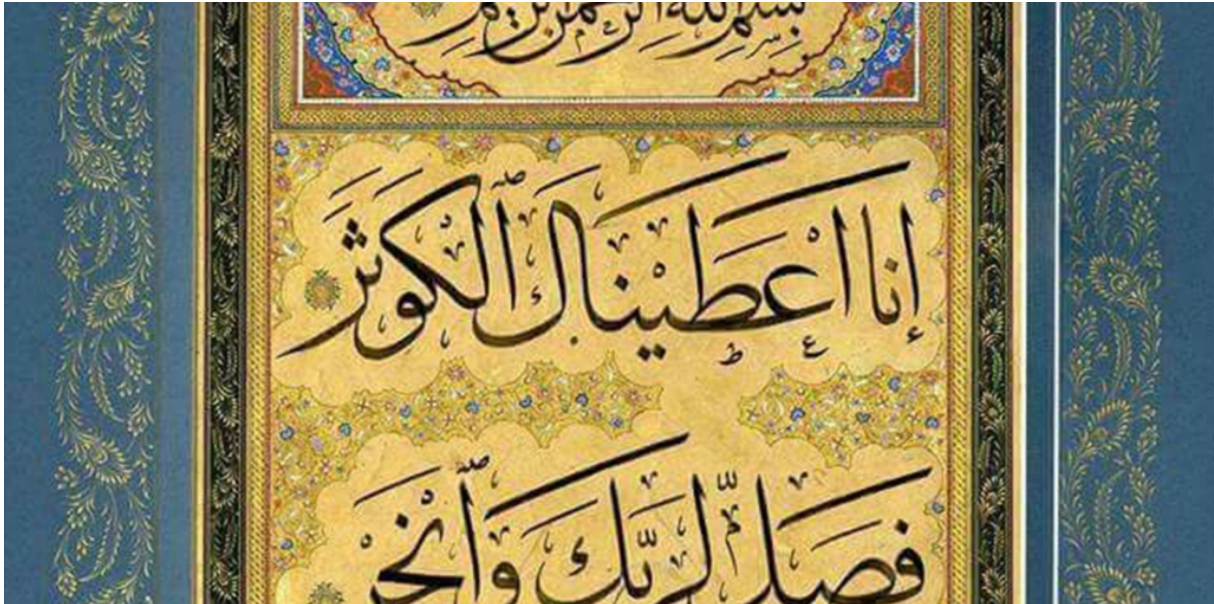 بسم الله الرحمن الرحيم
إنا اعطيناك الكوثر
فصل لربك وانحر